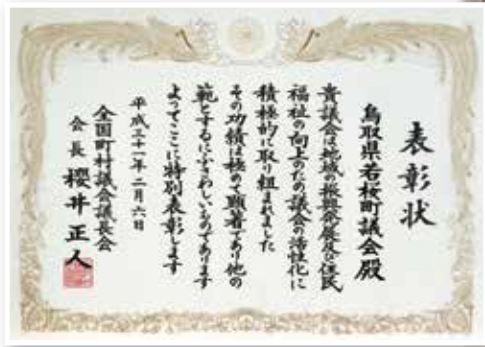 表彰状
鳥取県若桜町議会殿
貴議会は地域の振興発展及び住民
福祉の向上のため議会の活性化に
積極的に取り組まれました
その功績は極めて顕著であり他の
範とするにふさわしいものであります
よってここに特別表彰します
平成三十一年二月六日
全国町村議会議長会
会長 櫻井正人